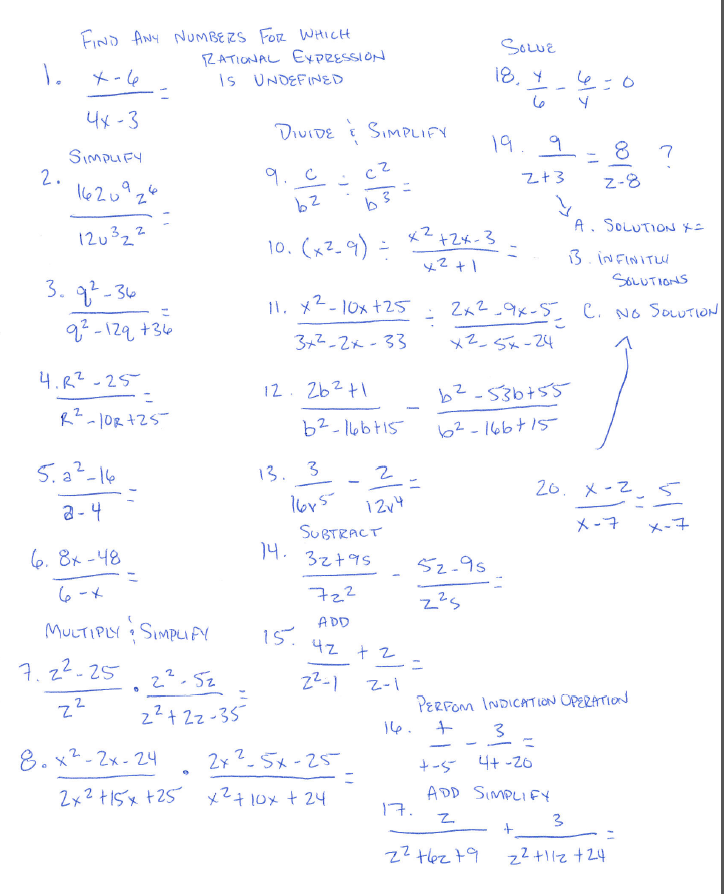 FIND ANY NUMBERS FOR WHICH
RATIONAL EXPRESSION
IS UNDEFINED
1. x-6
4x-3 =
SIMPLIFY
2. 162u⁹z⁶
12u³z² =
3. q²-36
q²-12q+36 =
4. R²-25
R²-10R+25 =
5. a²-16
a-4 =
6. 8x-48
6-x =
MULTIPLY & SIMPLIFY
7. z²-25 · z²-5z
z² z²+2z-35 =
8. x²-2x-24 · 2x²-5x-25
2x²+15x+25 x²+10x+24 =
DIVIDE & SIMPLIFY
9. c ÷ c² =
b² b³
10. (x²-9) ÷ x²+2x-3 =
x²+1
11. x²-10x+25 ÷ 2x²-9x-5 =
3x²-2x-33 x²-5x-24
12. 2b²+1 - b²-53b+55
b²-16b+15 b²-16b+15
13. 3 - 2 =
16v⁵ 12v⁴
SUBTRACT
14. 3z+9s - 5z-9s =
7z² z²s
ADD
15. 4z + z =
z²-1 z-1
PERFOM INDICATION OPERATION
16. t - 3 =
t-5 4t-20
ADD SIMPLIFY
17. z + 3 =
z²+6z+9 z²+11z+24
SOLVE
18. y - 6 = 0
6 y
19. 9 = 8 ?
z+3 z-8
A. SOLUTION x=
B. INFINITLY
SOLUTIONS
C. NO SOLUTION
20. x-2 = 5
x-7 x-7